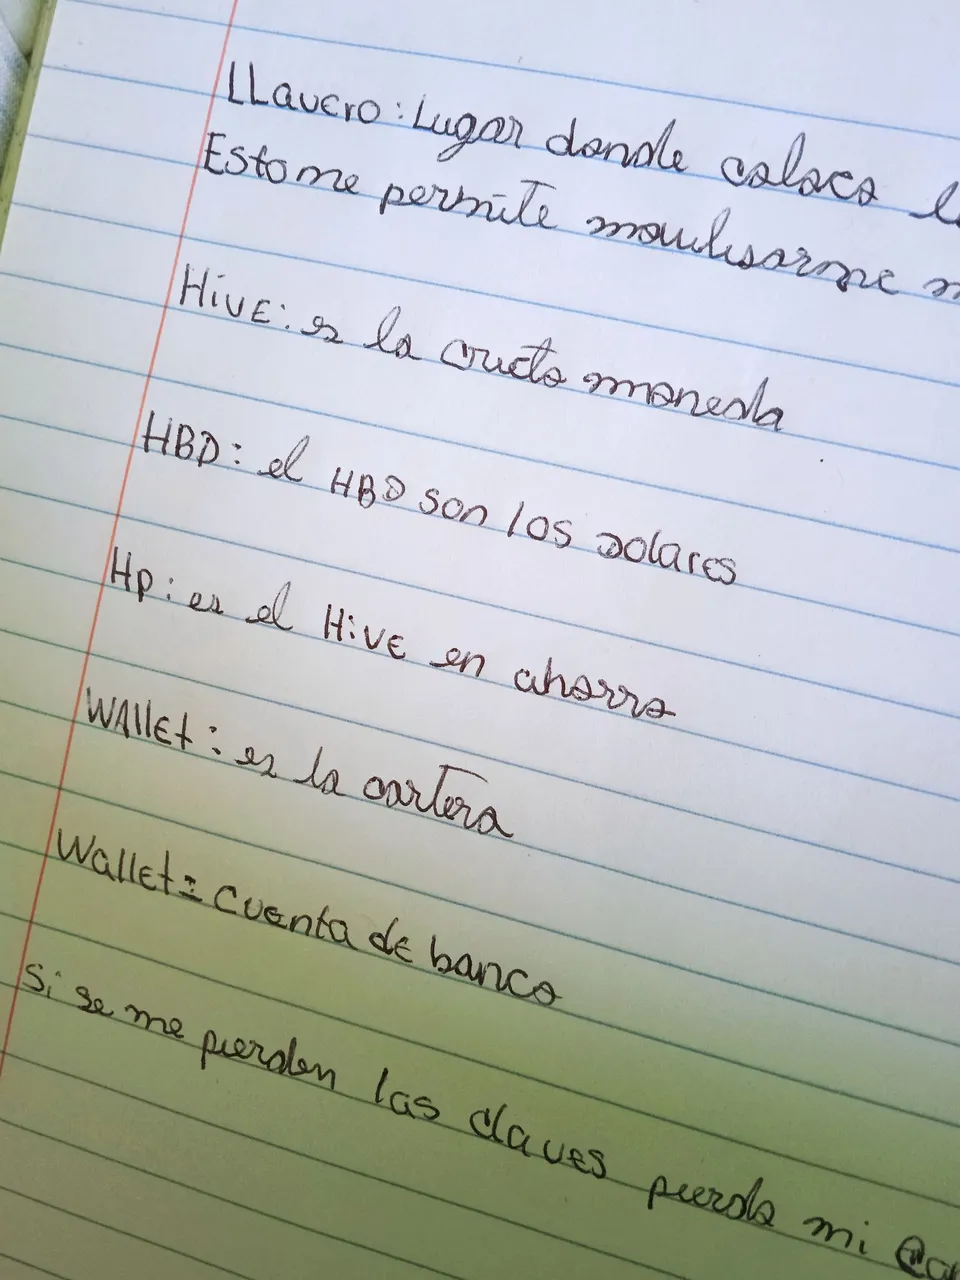 LLavero: Lugar donde coloco
Esto me permite movilisarme
Hive: es la cripto moneda
HBD: el HBD son los dolares
Hp: es el Hive en ahorro
WAllet: es la cartera
Wallet= cuenta de banco
Si se me pierden las claves pierdo mi